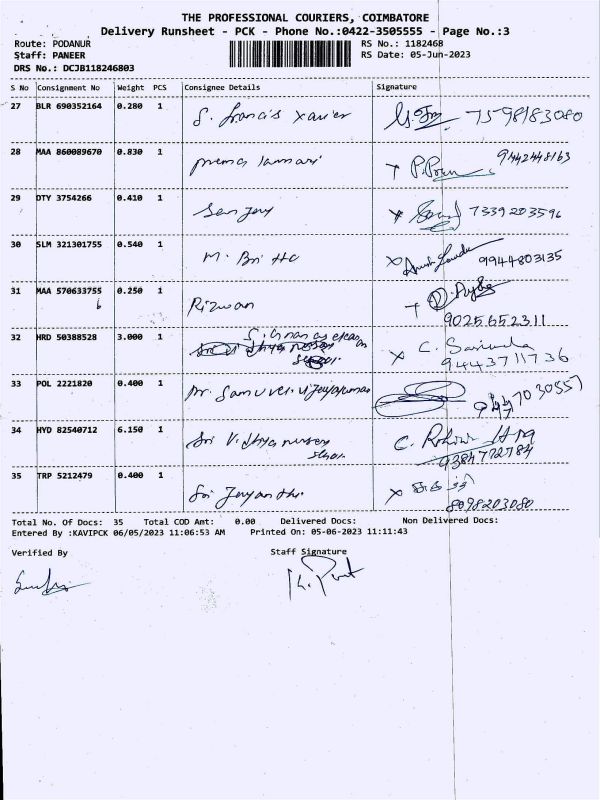 THE PROFESSIONAL COURIERS, COIMBATORE
Delivery Runsheet - PCK - Phone No.:0422-3505555 - Page No.:3
Route: PODANUR RS No.: 1182468
Staff: PANEER RS Date: 05-Jun-2023
DRS No.: DCJB118246803
S No Consignment No Weight PCS Consignee Details Signature
27 BLR 690352164 0.280 1 S. francis xavier 7598183080
28 MAA 860089670 0.830 1 prema 9442448163
29 DTY 3754266 0.410 1 Sanjay 7339203596
30 SLM 321301755 0.540 1 M. 9944803135
31 MAA 570633755 0.250 1 Rizwan
9025652311
32 HRD 50388528 3.000 1 C.
9443711736
33 POL 2221820 0.400 1 Mr. Samuvel vijayakumar
34 HYD 82540712 6.150 1 Sri Vidhya nursery C.
9384772784
35 TRP 5212479 0.400 1 Sri Jayanthi
8098203080
Total No. Of Docs: 35 Total COD Amt: 0.00 Delivered Docs: Non Delivered Docs:
Entered By :KAVIPCK 06/05/2023 11:06:53 AM Printed On: 05-06-2023 11:11:43
Verified By Staff Signature